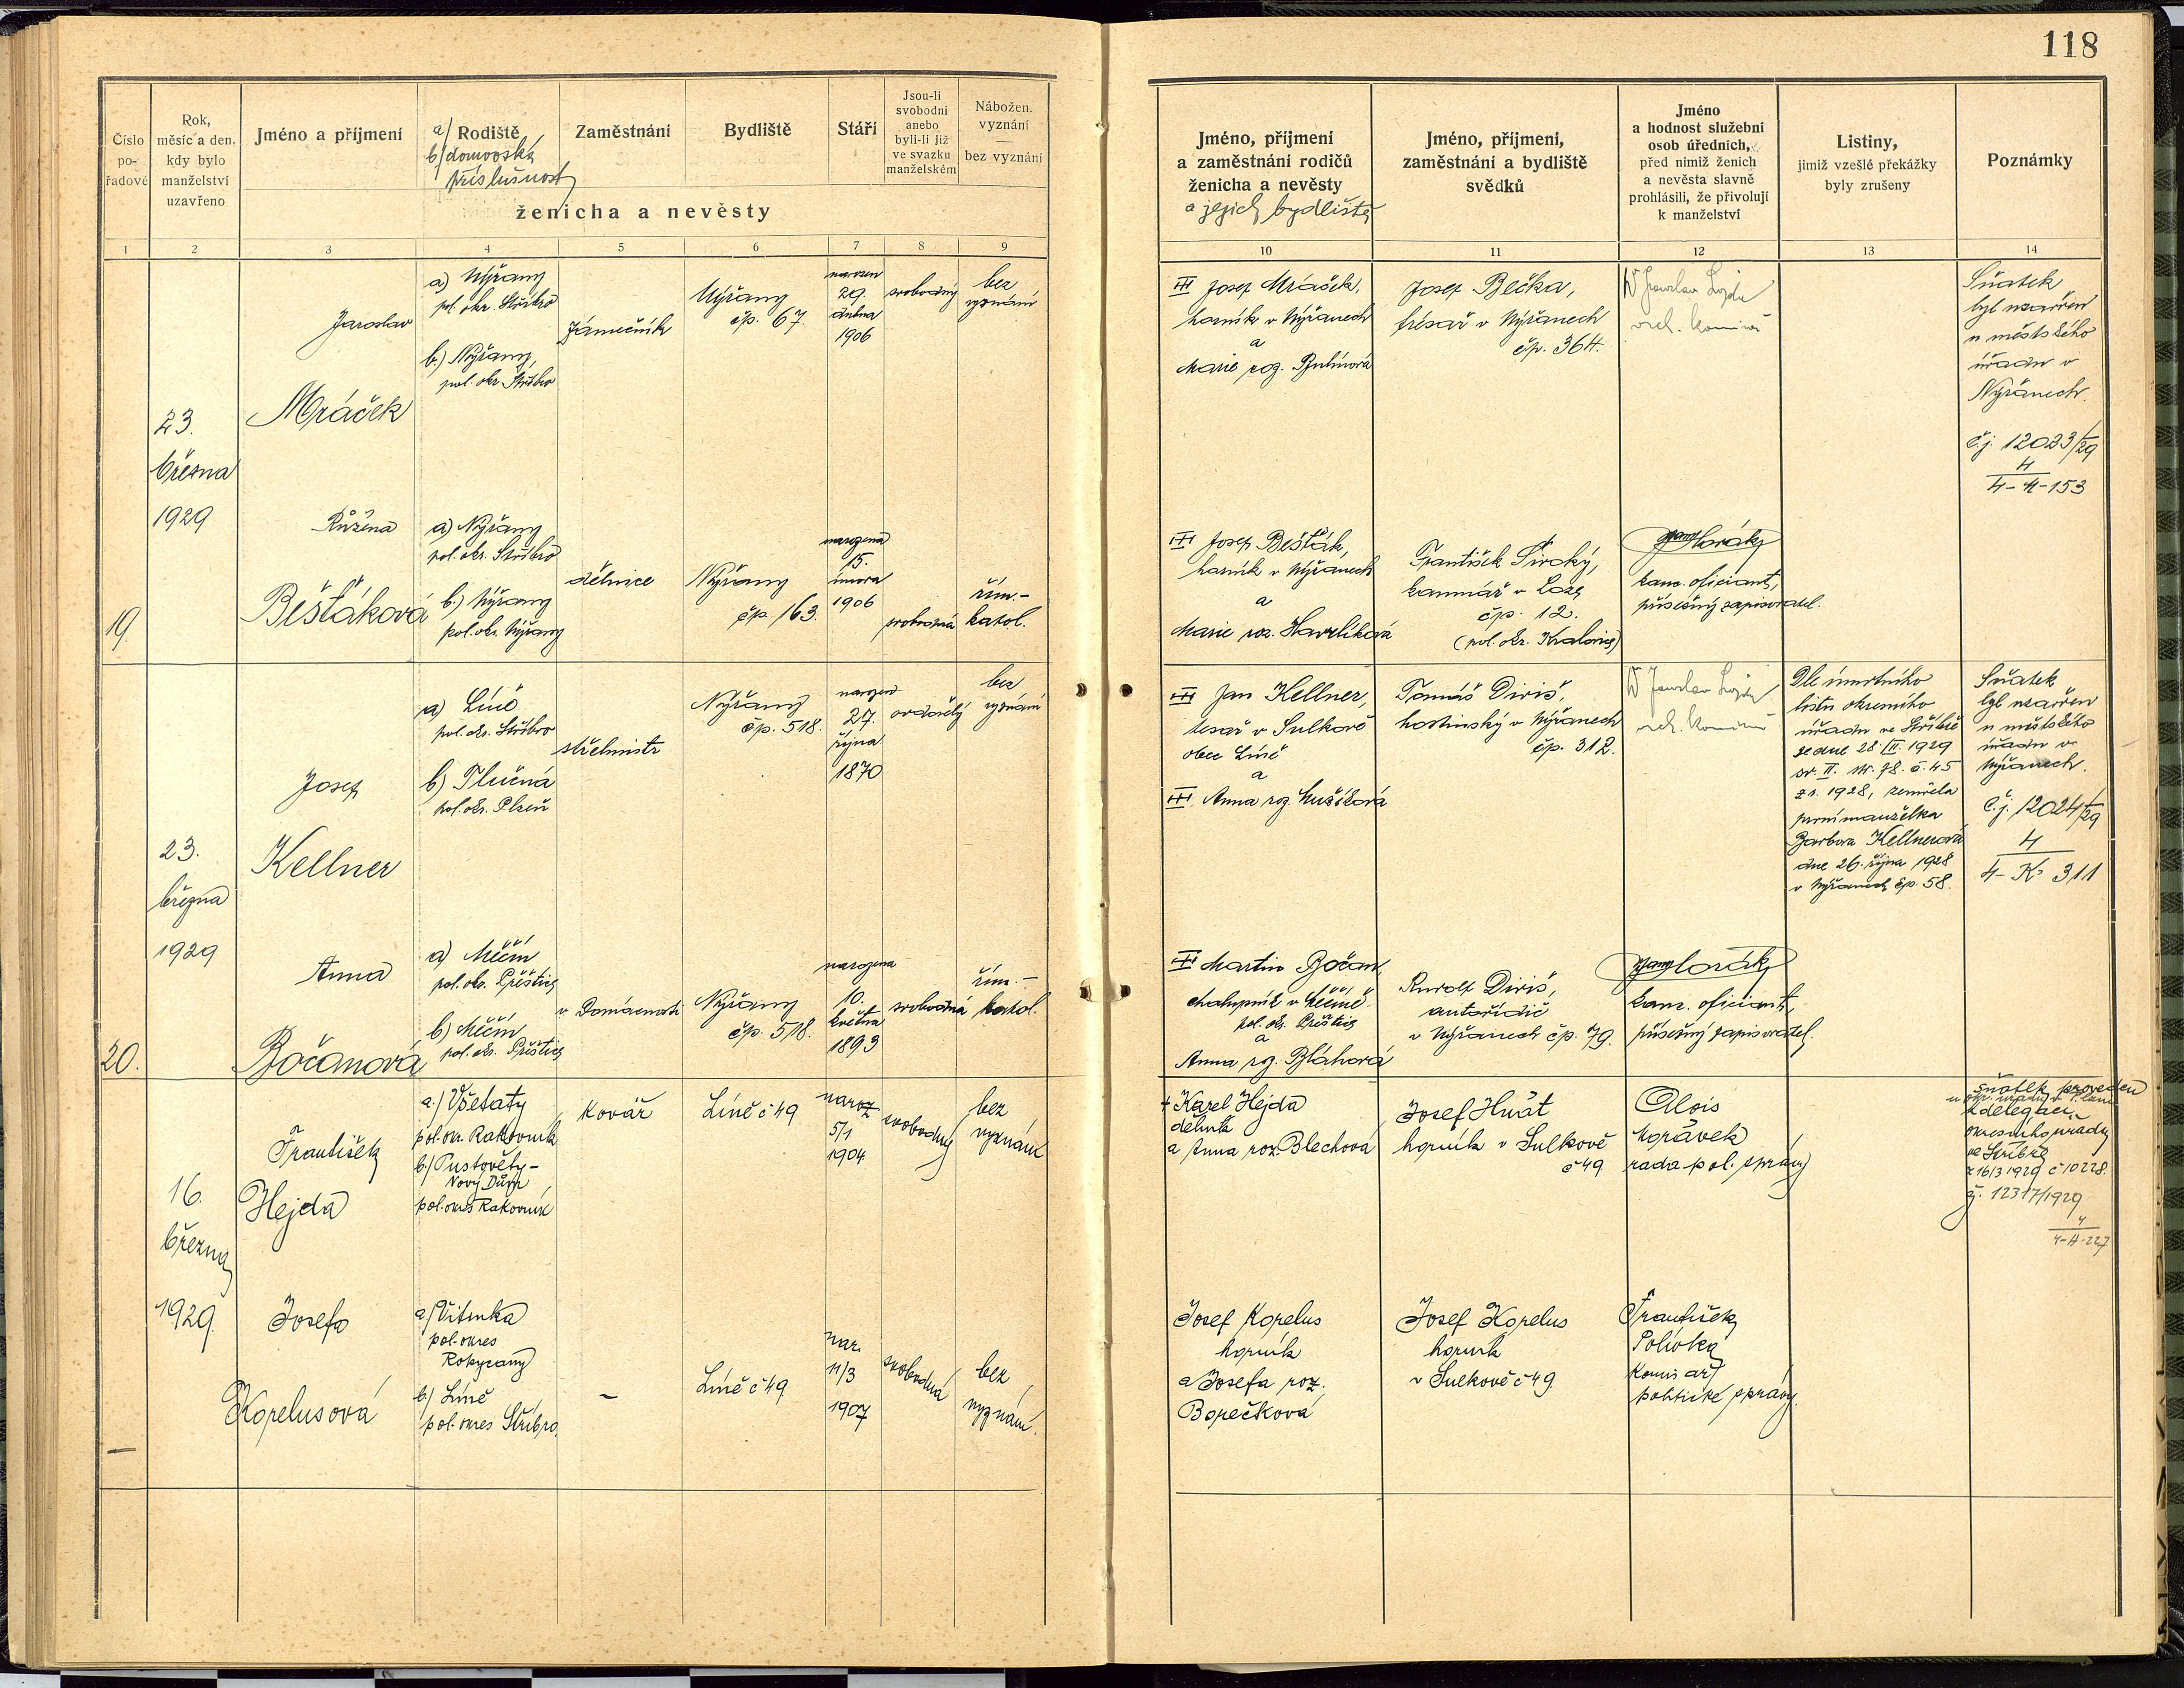 118
Číslo
po-
řadové
Rok,
měsíc a den,
kdy bylo
manželství
uzavřeno
Jméno a příjmení
a/ Rodiště
b/ domovská
příslušnost
Zaměstnání
Bydliště
Stáří
Jsou-li
svobodni
anebo
byli-li již
ve svazku
manželském
Nábožen.
vyznání
—
bez vyznání
ženicha a nevěsty
Jméno, příjmení
a zaměstnání rodičů
ženicha a nevěsty
a jejich bydliště
Jméno, příjmení,
zaměstnání a bydliště
svědků
Jméno
a hodnost služební
osob úředních,
před nimiž ženich
a nevěsta slavně
prohlásili, že přivolují
k manželství
Listiny,
jimiž vzešlé překážky
byly zrušeny
Poznámky
1 2 3 4 5 6 7 8 9 10 11 12 13 14
19.
23.
března
1929
Jaroslav
Mráček
a) Nýřany
pol. okr. Stříbro
b.) Nýřany,
pol. okr. Stříbro
zámečník
Nýřany
čp. 67.
narozen
29.
dubna
1906
svobodný
bez
vyznání
Josef Mráček,
horník v Nýřanech
a
Marie roz.
Josef Bečka,
frésař v Nýřanech
čp. 364.
Jaroslav
Sňatek
byl uzavřen
u městského
úřadu v
Nýřanech.
Č.j. 12023/29
4
4-M-153
Růžena
Bešťáková
a) Nýřany
pol. okr. Stříbro
b.) Nýřany
pol. okr. Nýřany
dělnice
Nýřany
čp. 163.
narozena
15.
února
1906
svobodná
řím.-
katol.
Josef Bešťák,
horník v Nýřanech
a
Marie roz. Havlíková
František Široký,
v
čp. 12.
(pol. okr. Kralovice)
kanc. oficiant,
přísežný zapisovatel.
20.
23.
března
1929
Josef
Kellner
a) Líně
pol. okr. Stříbro
b) Tlučná
pol. okr. Plzeň
střelmistr
Nýřany
čp. 518.
narozen
27.
října
1870
ovdovělý
bez
vyznání
Jan Kellner,
tesař v Sulkově
obec Líně
a
Anna roz.
Tomáš Diriš,
hostinský v Nýřanech
čp. 312.
Jaroslav
Dle úmrtního
listu okresního
úřadu ve Stříbře
ze dne 28. III. 1929
sv. II. str. 78. č. 45
z r. 1928, zemřela
první manželka
Barbora Kellnerová
dne 26. října 1928
v Nýřanech čp. 58.
Sňatek
byl uzavřen
u městského
úřadu v
Nýřanech.
Č.j. 12024/29
4
4-K-311
Anna
Bočanová
a) Měčín
pol. okr. Přeštice
b) Měčín
pol. okr. Přeštice
v domácnosti
Nýřany
čp. 518.
narozena
10.
května
1893
svobodná
řím.-
katol.
Martin Bočan
chalupník v Měčíně
pol. okr. Přeštice
a
Anna roz. Bláhová
Rudolf Diriš,
autořidič
v Nýřanech čp. 79.
kanc. oficiant,
přísežný zapisovatel.
16.
března
1929.
František
Hejda
a./ Všetaty
pol. okr. Rakovník
b./ Pustověty-
Nový Dům
pol. okres Rakovník
kovář
Líně č 49
naroz
5/1
1904
svobodný
bez
vyznání
† Karel Hejda
dělník
a Anna roz. Blechová
Josef Hnát
horník v Sulkově
č 49
Alois
Morávek
rada pol. správy
Sňatek proveden
u okr. úřadu v
z delegace
okresního úřadu
ve Stříbře
z 16/3 1929 č 10228.
č. 12317/1929
4
4-H-227
Josefa
Kopelusová
a/ Vitinka
pol. okres
Rokycany
b./ Líně
pol. okres Stříbro.
–
Líně č 49
nar.
11/3
1907
svobodná
bez
vyznání.
Josef Kopelus
horník
a Josefa roz.
Borečková
Josef Kopelus
horník
v Sulkově č 49.
František
Polívka
komisař
politické správy.
—